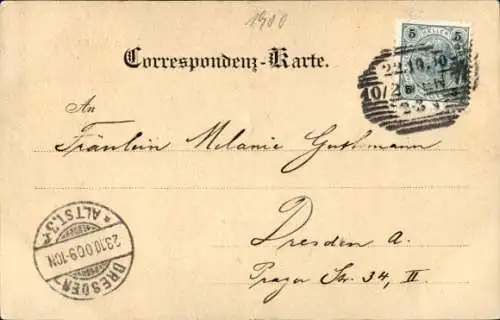 1900
5 HELLER 5
22.10.00
10/2
2-3
Correspondenz-Karte.
An
Fräulein Melanie Guthmann
Dresden A.
Prager Str. 34, II.
DRESDEN-
* ALTST. 3 *
23.10.00 9-10N.